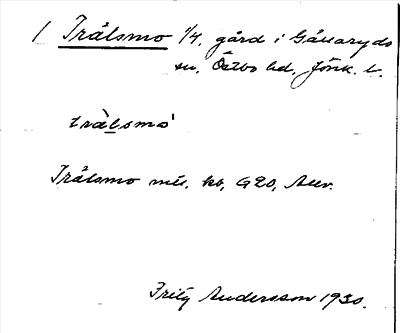 1 Trälsmo 1/4, gård i Gällaryds
sn, Östbo hd, Jönk. l.
tràlsmó
Trälsmo mu, kb, G20, Auv.
Fritz Andersson 1930.